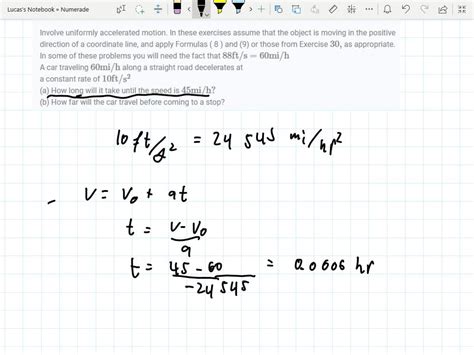 Lucas's Notebook » Numerade
Involve uniformly accelerated motion. In these exercises assume that the object is moving in the positive
direction of a coordinate line, and apply Formulas ( 8 ) and (9) or those from Exercise 30, as appropriate.
In some of these problems you will need the fact that 88ft/s = 60mi/h
A car traveling 60mi/h along a straight road decelerates at
a constant rate of 10ft/s²
(a) How long will it take until the speed is 45mi/h?
(b) How far will the car travel before coming to a stop?
10ft/s² = 24 545 mi/hr²
V = V₀ + at
t = V-V₀
a
t = 45 - 60 = 0.0006 hr
-24 545